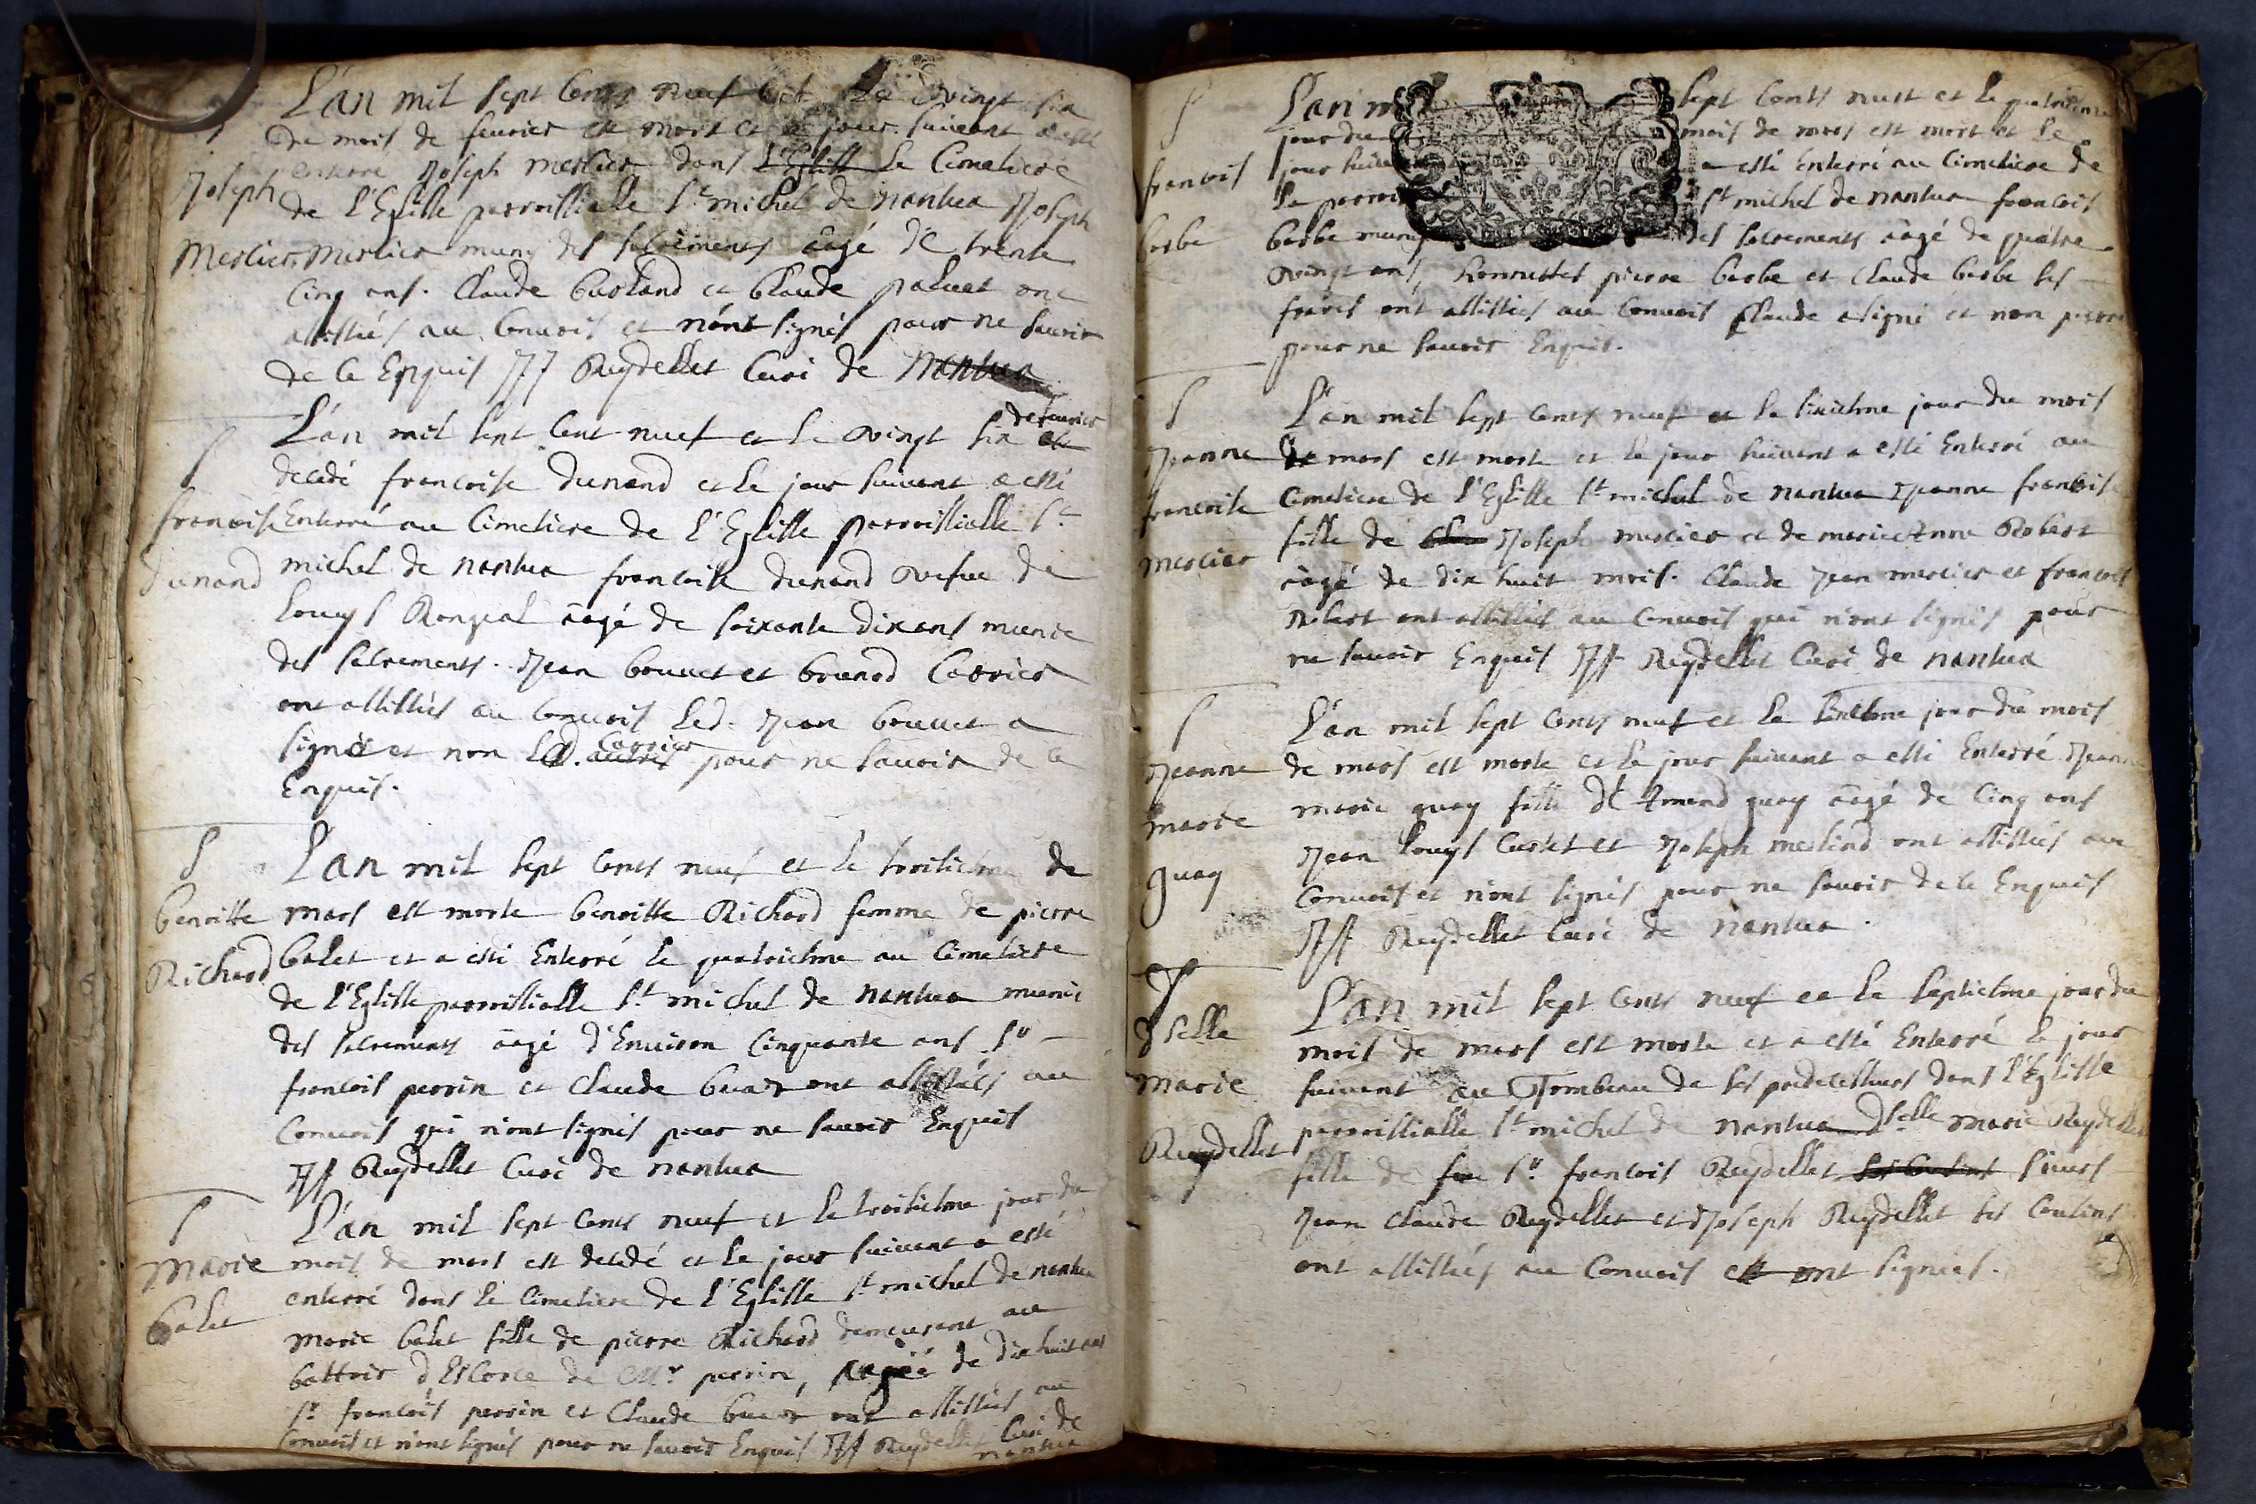 L'an mil sept Cents neuf et le vingt six
du mois de feurier est mort et le jour suiuant a esté
enterré Joseph Mercier dans l'Eglise le Cimetiere
Joseph
de l'Eglise parroissialle St michel de nantua Joseph
Mercier
Mercier muny des sacrements aagé de trente
Cinq ans. Claude et Claude ont
assistés au Conuois et n'ont signés pour ne sauoir
de ce Enquis JJ Reydellet Curé de Nantua
L'an mil sept Cent neuf et le vingt six de feurier est
decedé francoise dunand et le jour suiuant a esté
francoise
Enterré au Cimetiere de l'Eglise parroissialle St
dunand
michel de nantua francoise dunand vefue de
Louys aagé de soixante dix ans munie
des sacrements. Jean bouuet et Carrier
ont assistés au Conuois led. Jean bouuet a
signé et non led. autres Carrier pour ne sauoir de ce
Enquis.
L'an mil sept Cents neuf et le troisiesme de
benoitte
mars est morte benoitte Richard femme de pierre
Richard
balet et a esté Enterré le quatriesme au Cimetiere
de l'Eglise parroissialle St michel de nantua munie
des sacrements aagé d'Enuiron Cinquante ans Sr
francois perrin et Claude ont assistés au
Conuois qui n'ont signés pour ne sauoir Enquis
JJ Reydellet Curé de nantua
L'an mil sept Cents neuf et le troisiesme jour du
Marie
mois de mars est decedé et le jour suiuant a esté
balet
enterré dans le Cimetiere de l'Eglise St michel de nantua
Marie balet fille de pierre Richard demeurant au
battoir d'Escorce de Mr perrin, aagée de dix huit ans
Sr francois perrin et Claude ont assistés au
Conuois et n'ont signés pour ne sauoir Enquis JJ Reydellet Curé de
nantua
L'an mil sept Cents neuf et le quatriesme
jour du mois de mars est mort et le
francois
jour suiuant a esté Enterré au Cimetiere de
la parroisse St michel de nantua francois
berbe
berbe muny des sacrements aagé de quatre
vingt ans, honnestes pierre berbe et Claude berbe ses
freres ont assistés au Conuois Claude a signé et non pierre
pour ne sauoir Enquis.
L'an mil sept Cents neuf et le sixiesme jour du mois
Jeanne
de mars est morte et le jour suiuant a esté Enterré au
francoise
Cimetiere de l'Eglise St michel de nantua Jeanne francoise
mercier
fille de Joseph mercier et de marie Anne Robert
aagé de dix huit mois. Claude Jean mercier et francois
Robert ont assistés au Conuois qui n'ont signés pour
ne sauoir Enquis JJ Reydellet Curé de nantua
L'an mil sept Cents neuf et le jour du mois
Jeanne
de mars est morte et le jour suiuant a esté Enterré Jeanne
marie
marie guay fille d'Amand guay aagé de Cinq ans
guay
Jean Louys et Joseph merland ont assistés au
Conuois et n'ont signés pour ne sauoir de ce Enquis
JJ Reydellet Curé de nantua.
L'an mil sept Cents neuf et le septiesme jour du
dselle
mois de mars est morte et a esté Enterré le jour
marie
suiuant au Tombeau de ses predecesseurs dans l'Eglise
Reydellet
parroissialle St michel de nantua Dselle marie Reydellet
fille de feu Sr francois Reydellet Sieurs
Jean Claude Reydellet et Joseph Reydellet ses Cousins
ont assistés au Conuois et ont signés.